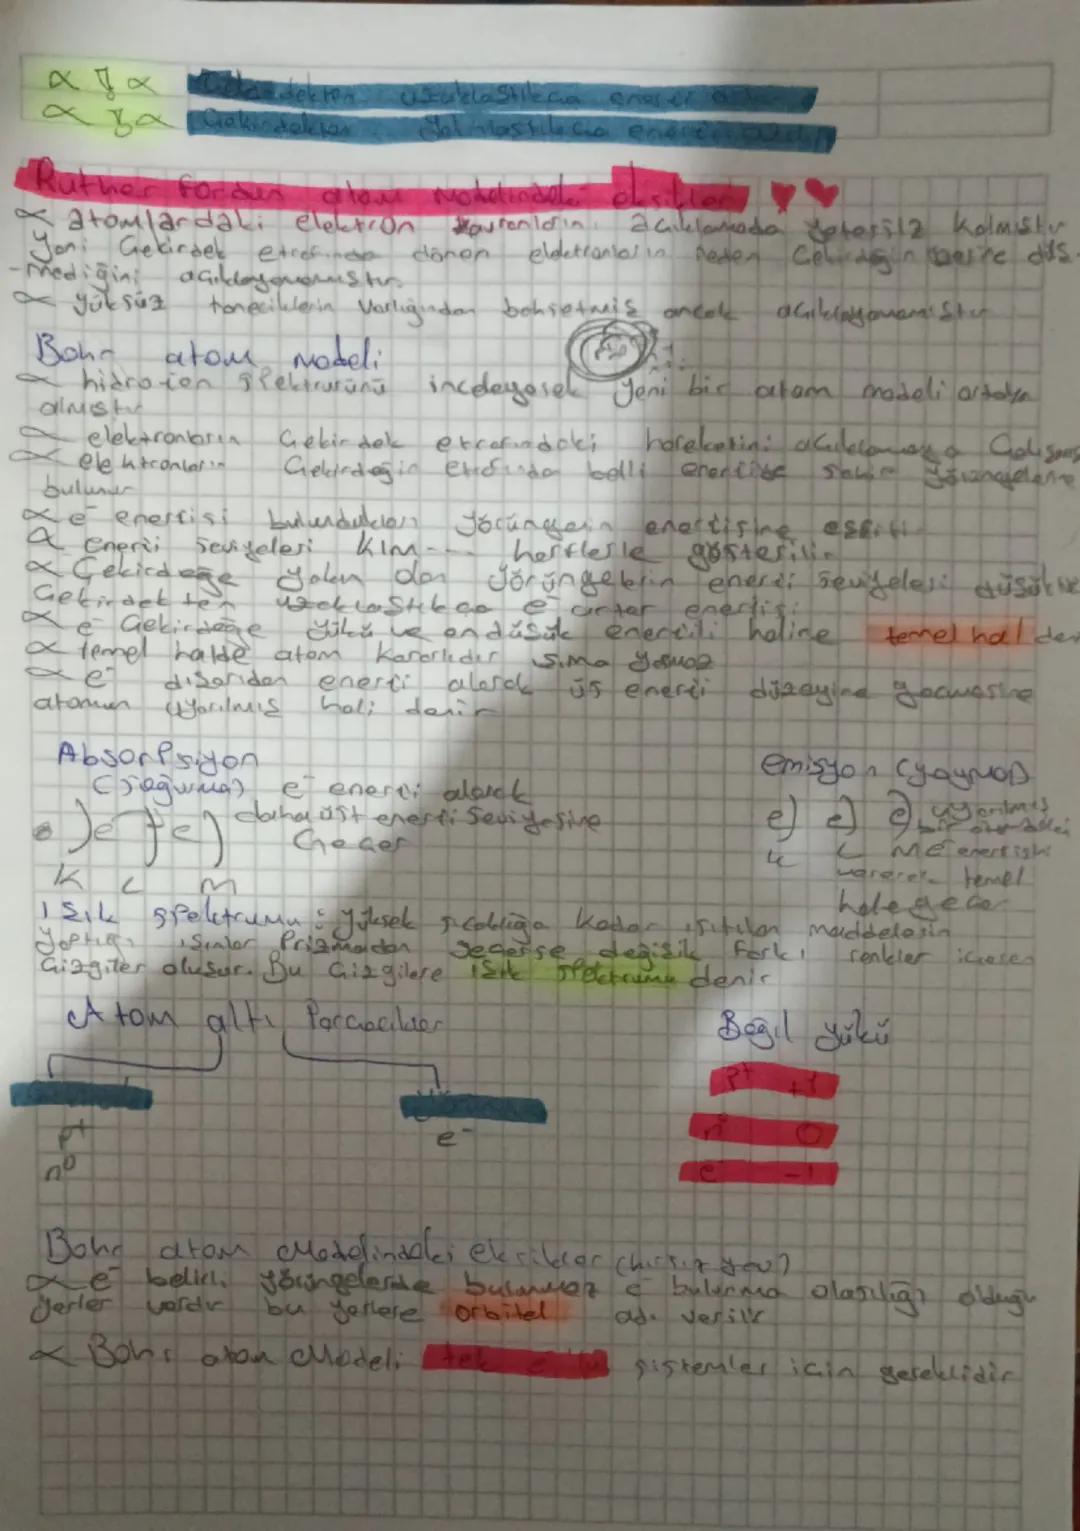 Çekirdekten uzaklaştıkca enerji
Çekirdekten yakınlaştıkca enerji
Rutherfordun atom modelindeki eksikler
atomlardaki elektron davranışların açıklamada yetersiz kalmıştır
Yani Çekirdek etrafında dönen elektronların neden Çekirdeğin üzerine düş-
-mediğini açıklayamamıştır
yüksüz taneciklerin varlığından bahsetmiş ancak açıklayamamıştır
Bohr atom modeli
hidrojen spektrumunu inceleyerek yeni bir atom modeli ortaya
atmıştır
elektronların Çekirdek etrafındaki hareketini açıklamaya Çalışmış
elektronların Çekirdeğin etrafında belli enerjide sahip yörüngelerde
bulunur
e⁻ enerjisi bulundukları yörüngenin enerjisine eşittir
Enerji seviyeleri KLM--- harflerle gösterilir
Çekirdeğe yakın olan yörüngelerin enerji seviyeleri düşüktür
Çekirdekten uzaklaştıkca e⁻ artar enerjisi
e⁻ Çekirdeğe yükü ve en düşük enerjili haline temel hal den
temel halde atom kararlıdır ışıma yapmaz
e⁻ dışarıdan enerji alarak üst enerji düzeyine geçmesine
atomun uyarılmış hali denir
Absorpsiyon
(Soğurma) e⁻ enerji alarak
daha üst enerji seviyesine
Geçer
K L M
emisyon (yayma)
e) e) e) uyarılmış
bir atomdaki
K L M e⁻ enerjisini
vererek temel
hale geçer
Işık spektrumu: yüksek sıcaklığa kadar ısıtılan maddelerin
yaptığı ışınlar Prizmadan geçerse değişik farklı renkler içeren
Çizgiler oluşur. Bu Çizgilere ışık spektrumu denir
Atom altı Parçacıklar
Bağıl yükü
p⁺ +1
e⁻
p⁺
n⁰ 0
n⁰
e⁻ -1
Bohr atom Modelindeki eksikler
e⁻ belirli yörüngelerde bulunmaz e⁻ bulunma olasılığı olduğu
yerler vardır bu yerlere orbitel adı verilir
Bohr atom Modeli tek sistemler için gereklidir